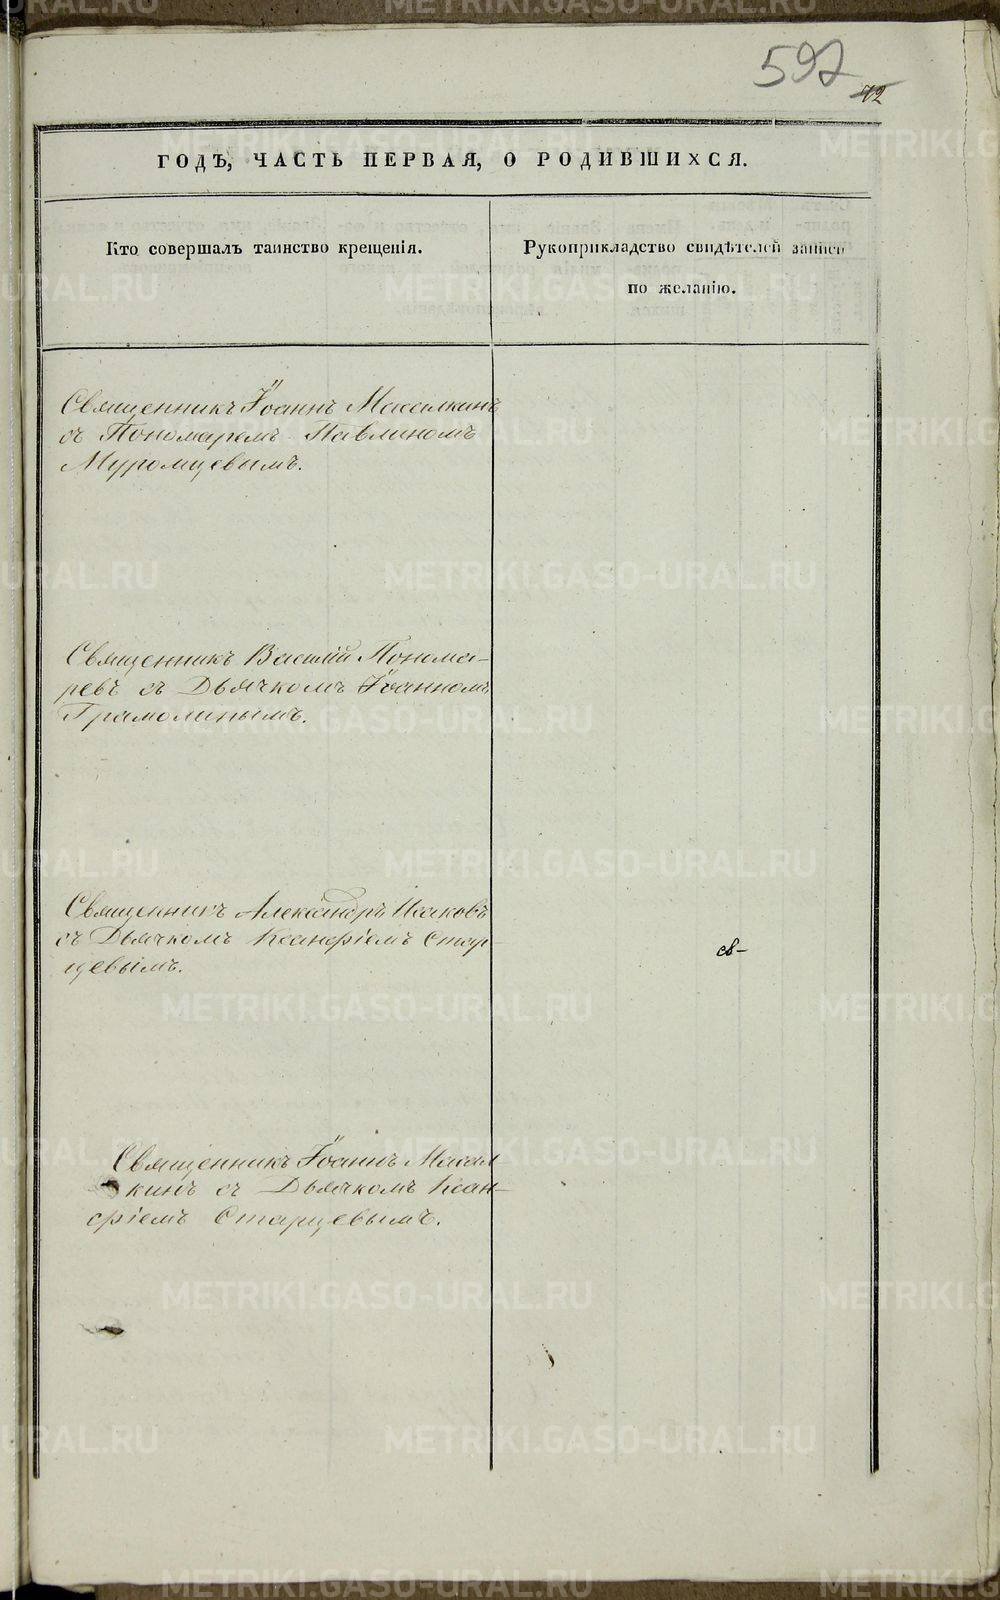 597
72
ГОДЪ, ЧАСТЬ ПЕРВАЯ, О РОДИВШИХСЯ.
Кто совершалъ таинство крещенія.
Рукоприкладство свидѣтелей записи
по желанію.
Священникъ Іоаннъ Масалкинъ
съ Пономаремъ Павлиномъ
Муромцевымъ.
Священникъ Василій Понома-
ревъ съ Дьячкомъ Іоанномъ
Грамолинымъ.
Священникъ Александръ Исаковъ
съ Дьячкомъ Ксанфіемъ Стар-
цевымъ.
св-
Священникъ Іоаннъ Масал
кинъ съ Дьячкомъ Ксан-
фіемъ Старцевымъ.
METRIKI.GASO-URAL.RU